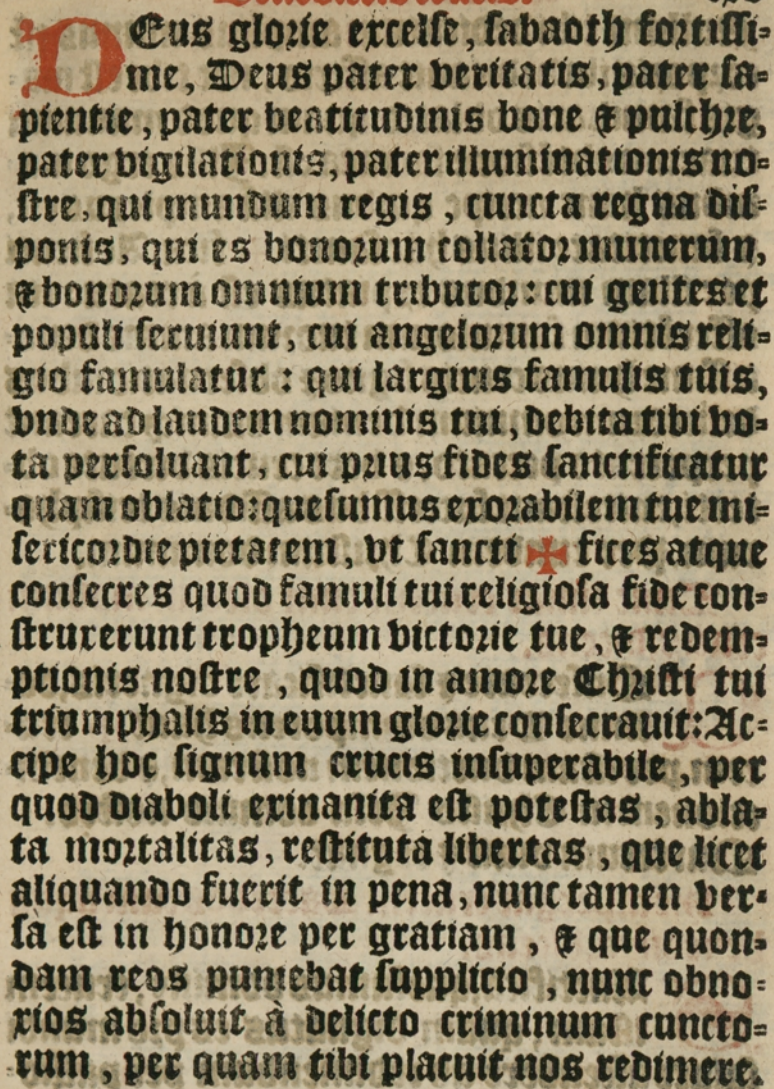 DEus glorie excelse, sabaoth fortissi-
me, Deus pater veritatis, pater sa-
pientie, pater beatitudinis bone & pulchre,
pater vigilationis, pater illuminationis no-
stre, qui mundum regis, cuncta regna dis-
ponis, qui es bonorum collator munerum,
& bonorum omnium tributor: cui gentes et
populi seruiunt, cui angelorum omnis reli-
gio famulatur : qui largiris famulis tuis,
vnde ad laudem nominis tui, debita tibi vo-
ta persoluant, cui prius fides sanctificatur
quam oblatio: quesumus exorabilem tue mi-
sericordie pietatem, vt sancti ✠ fices atque
consecres quod famuli tui religiosa fide con-
struxerunt tropheum victorie tue, & redem-
ptionis nostre, quod in amore Christi tui
triumphalis in euum glorie consecrauit: Ac-
cipe hoc signum crucis insuperabile, per
quod diaboli exinanita est potestas, abla-
ta mortalitas, restituta libertas, que licet
aliquando fuerit in pena, nunc tamen ver-
sa est in honore per gratiam, & que quon-
dam reos puniebat supplicio, nunc obno-
xios absoluit à delicto criminum cuncto-
rum, per quam tibi placuit nos redimere.